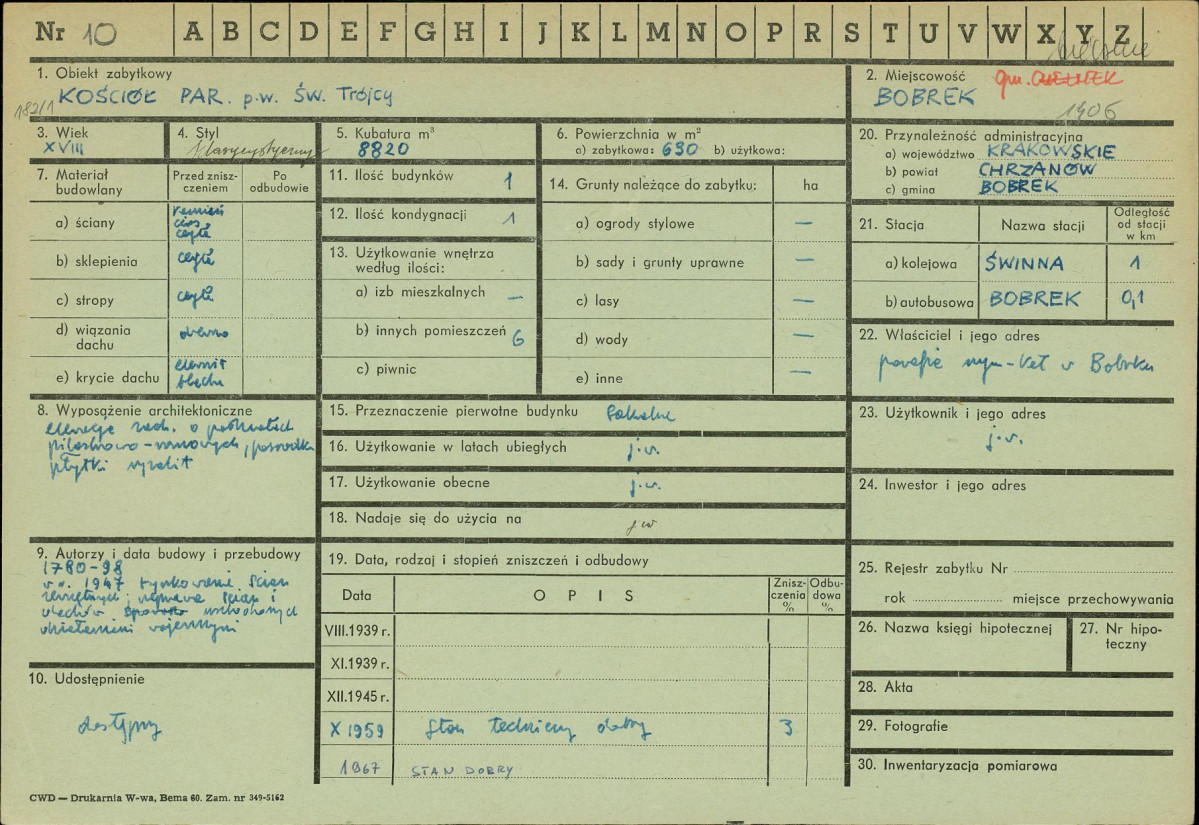 Nr 10 A B C D E F G H I J K L M N O P R S T U V W X Y Z
1. Obiekt zabytkowy
KOŚCIÓŁ PAR. p.w. ŚW. TRÓJCY
182/1
2. Miejscowość gm.
BOBREK
1906
3. Wiek
XVIII
4. Styl
klasycystyczny
5. Kubatura m³
8820
6. Powierzchnia w m²
a) zabytkowa: 630 b) użytkowa:
7. Materiał budowlany
Przed zniszczeniem
Po odbudowie
a) ściany kamień cios cegła
b) sklepienia cegła
c) stropy cegła
d) wiązania dachu drewno
e) krycie dachu eternit blacha
8. Wyposażenie architektoniczne
elewacje zach. o podziałach
pilastrowo-ramowych, pośrodku
płytki ryzalit
9. Autorzy i data budowy i przebudowy
1780-98
w r. 1947 tynkowanie ścian
zewnętrznych, naprawa ścian i
dachów uszkodzonych
działaniami wojennymi
10. Udostępnienie
dostępny
11. Ilość budynków 1
12. Ilość kondygnacji 1
13. Użytkowanie wnętrza
według ilości:
a) izb mieszkalnych —
b) innych pomieszczeń 6
c) piwnic
14. Grunty należące do zabytku: ha
a) ogrody stylowe —
b) sady i grunty uprawne —
c) lasy —
d) wody —
e) inne —
15. Przeznaczenie pierwotne budynku sakralne
16. Użytkowanie w latach ubiegłych j.w.
17. Użytkowanie obecne j.w.
18. Nadaje się do użycia na jw
19. Data, rodzaj i stopień zniszczeń i odbudowy
Data OPIS Zniszczenia % Odbudowa %
VIII.1939 r.
XI.1939 r.
XII.1945 r.
X 1959 Stan techniczny dobry 3
1967 STAN DOBRY
20. Przynależność administracyjna
a) województwo KRAKOWSKIE
b) powiat CHRZANÓW
c) gmina BOBREK
21. Stacja Nazwa stacji Odległość od stacji w km
a) kolejowa ŚWINNA 1
b) autobusowa BOBREK 0,1
22. Właściciel i jego adres
parafia rzym-kat w Bobrku
23. Użytkownik i jego adres
j.w.
24. Inwestor i jego adres
25. Rejestr zabytku Nr
rok miejsce przechowywania
26. Nazwa księgi hipotecznej
27. Nr hipoteczny
28. Akta
29. Fotografie
30. Inwentaryzacja pomiarowa
CWD — Drukarnia W-wa, Bema 60. Zam. nr 349-5162